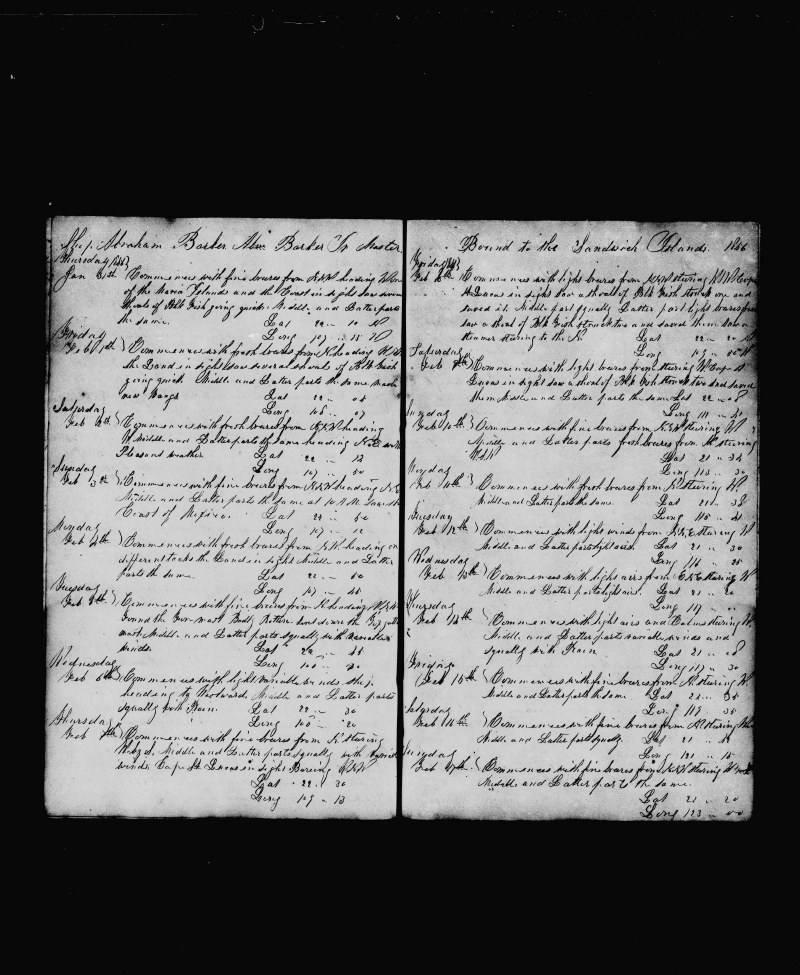 Ship Abraham Barker Abm Barker Jr Master
Thursday
Jan 31st Commences with fine breezes from NNW heading W one
of the Maria Islands and the Coast in sight saw several
shoals of Blk Fish going quick Middle and Latter parts
the same. Lat 22 - 10 N
Long 107 - 15 W
Friday
Feb 1st Commences with fresh breezes from N heading
the Land in sight saw several shoals of Blk Fish
going quick Middle and Latter parts the same made
new
Lat 22
Long 106
Saturday
Feb 2d Commences with fresh breezes from NNW heading
W Middle and Latter parts the same heading
Pleasant weather Lat 22
Long 107
Sunday
Feb 3rd Commences with fine breezes from NNW heading
Middle and Latter parts the same at 10 A.M. saw the
Coast of Mexico. Lat
Long 107 - 12
Monday
Feb 4th Commences with fresh breezes from NW heading on
different tacks the Land in sight Middle and Latter
parts the same. Lat 22
Long 107
Tuesday
Feb 5th Commences with fine breezes from N heading
found the Fore-mast Badly Rotten
mast Middle and Latter parts squally with variable
winds. Lat 22
Long 106 - 30
Wednesday
Feb 6th Commences with light variable winds ship
heading to Westward Middle and Latter parts
squally with Rain. Lat 22 - 30
Long 108 - 20
Thursday
Feb 7th Commences with fine breezes from N stering
W by S. Middle and Latter parts squally with variable
winds Cape St Lucas in sight Bearing
Lat 22 - 36
Long 109 - 13
Bound to the Sandwich Islands. 1866
Friday
Feb 8th Commences with light breezes from NNW stering Cape
St Lucas in sight saw a shoal of Blk Fish struck one and
saved it Middle part squally Latter part light breezes from
saw a shoal of Blk Fish struck two and saved them saw a
steamer stering to the N. Lat 22 - 20 N
Long 109 W
Saturday
Feb 9th Commences with light breezes from stering W Cape St
Lucas in sight saw a shoal of Blk Fish struck two and saved
them Middle and Latter parts the same Lat 22 - 08
Long 111
Sunday
Feb 10th Commences with fine breezes from NNW stering W
Middle and Latter parts fresh breezes from N stering
Lat 21 - 34
Long 113 - 30
Monday
Feb 11th Commences with fresh breezes from N stering W.
Middle and Latter parts the same. Lat 21 - 38
Long 115
Tuesday
Feb 12th Commences with light winds from NNE stering W
Middle and Latter parts light airs. Lat 21 - 30
Long 116 - 25
Wednesday
Feb 13th Commences with light airs from stering W
Middle and Latter parts light airs. Lat 21 - 20
Long 117
Thursday
Feb 14th Commences with light airs and Calms stering W.
Middle and Latter parts variable winds and
squally with Rain Lat 21 - 08
Long 117 - 30
Friday
Feb 15th Commences with fine breezes from N stering W
Middle and Latter parts the same. Lat 21 - 35
Long 119 - 35
Saturday
Feb 16th Commences with fine breezes from N stering W
Middle and Latter parts squally. Lat 21
Long 121 - 15
Sunday
Feb 17th Commences with fine breezes from NNW stering W
Middle and Latter parts the same.
Lat 21 - 20
Long 123 - 00